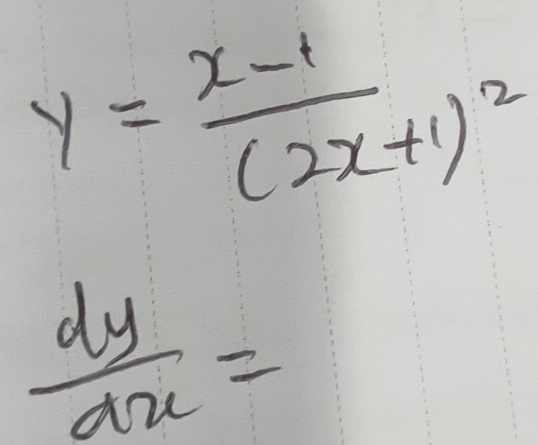 y = \frac{x-1}{(2x+1)^2}
\frac{dy}{dx} =